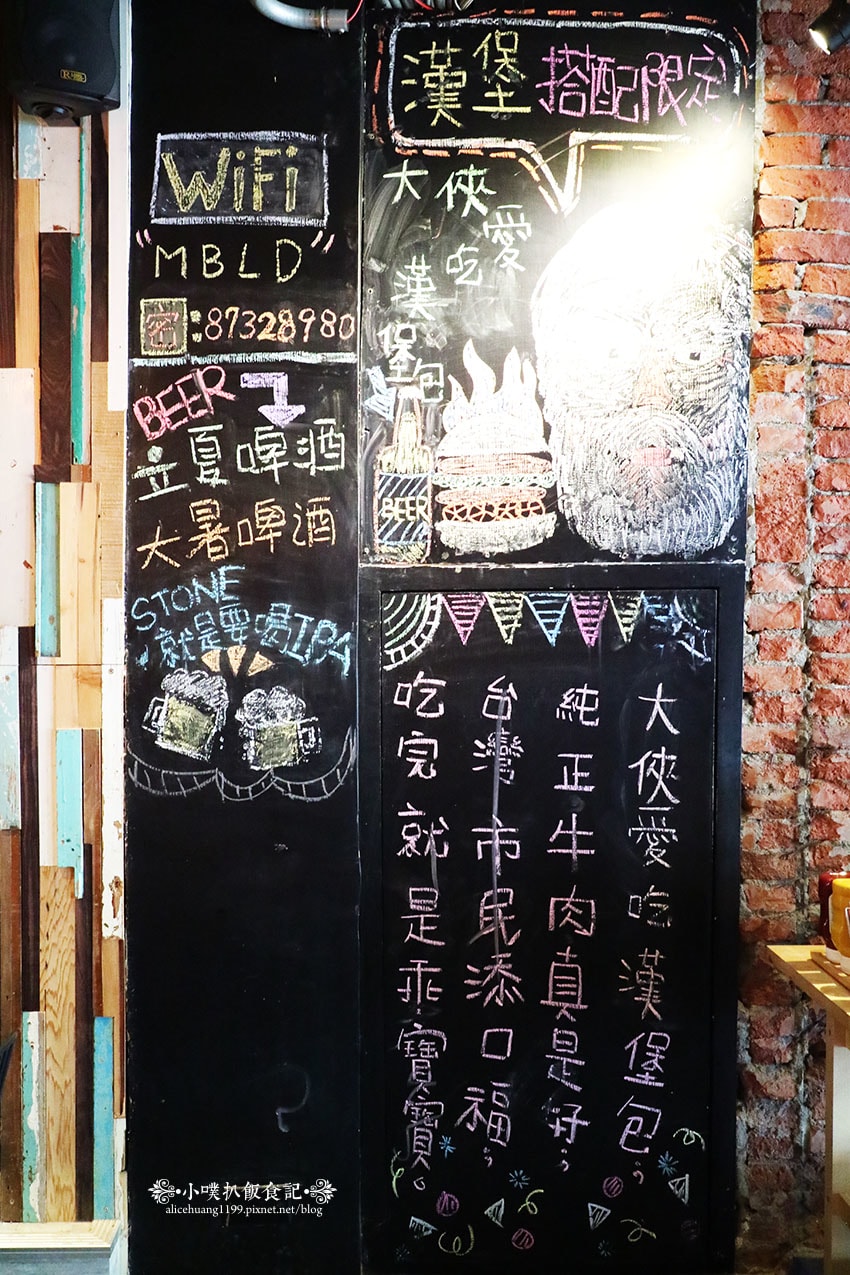 WiFi
"MBLD"
密:87328980
BEER
立夏啤酒
大暑啤酒
STONE
就是要喝IPA
漢堡搭配限定
大俠愛吃漢堡包
BEER
大俠愛吃漢堡包,
純正牛肉真是好,
台灣市民添口福,
吃完就是乖寶寶。
小噗扒飯食記
alicehuang1199.pixnet.net/blog